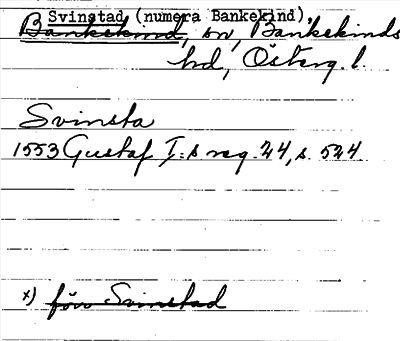 Svinstad (numera Bankekind),
Bankekind, sn, Bankekinds
hd, Österg. l.
Svinsta
1553 Gustaf I:s reg. 24, s. 524
x) förr Svinstad